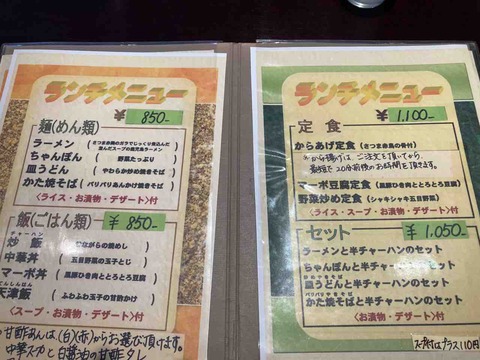 ランチメニュー
¥ 850-
麺(めん類)
ラーメン (さつま赤鶏のガラでじっくり煮込んだ
ちゃんぽん ( 野菜たっぷり )
皿うどん ( やわらか炒め焼きそば )
かた焼そば ( パリパリあんかけ焼きそば )
〈ライス・お漬物・デザート〉付
飯(ごはん類) ¥850-
チャーハン
炒飯 ( ながらの焼めし )
中華丼 ( 五目野菜の玉子とじ )
マーボ丼 ( 黒豚ひき肉ととろとろ豆腐 )
天津飯 ( ふわふわ玉子の甘酢かけ )
〈スープ・お漬物・デザート〉付
甘酢あんは、(白)(赤)からお選び頂けます。
ランチメニュー
¥1,100-
定食
からあげ定食 (さつま赤鳥の骨付)
マーボ豆腐定食 (黒豚ひき肉ととろとろ豆腐)
野菜炒め定食 (シャキシャキ五目野菜)
〈ライス・スープ・お漬物・デザート〉付
セット ¥1,050-
ラーメンと半チャーハンのセット
ちゃんぽんと半チャーハンのセット
皿うどんと半チャーハンのセット
パリパリヤキソバ
かた焼そばと半チャーハンのセット
〈お漬物・デザート〉付